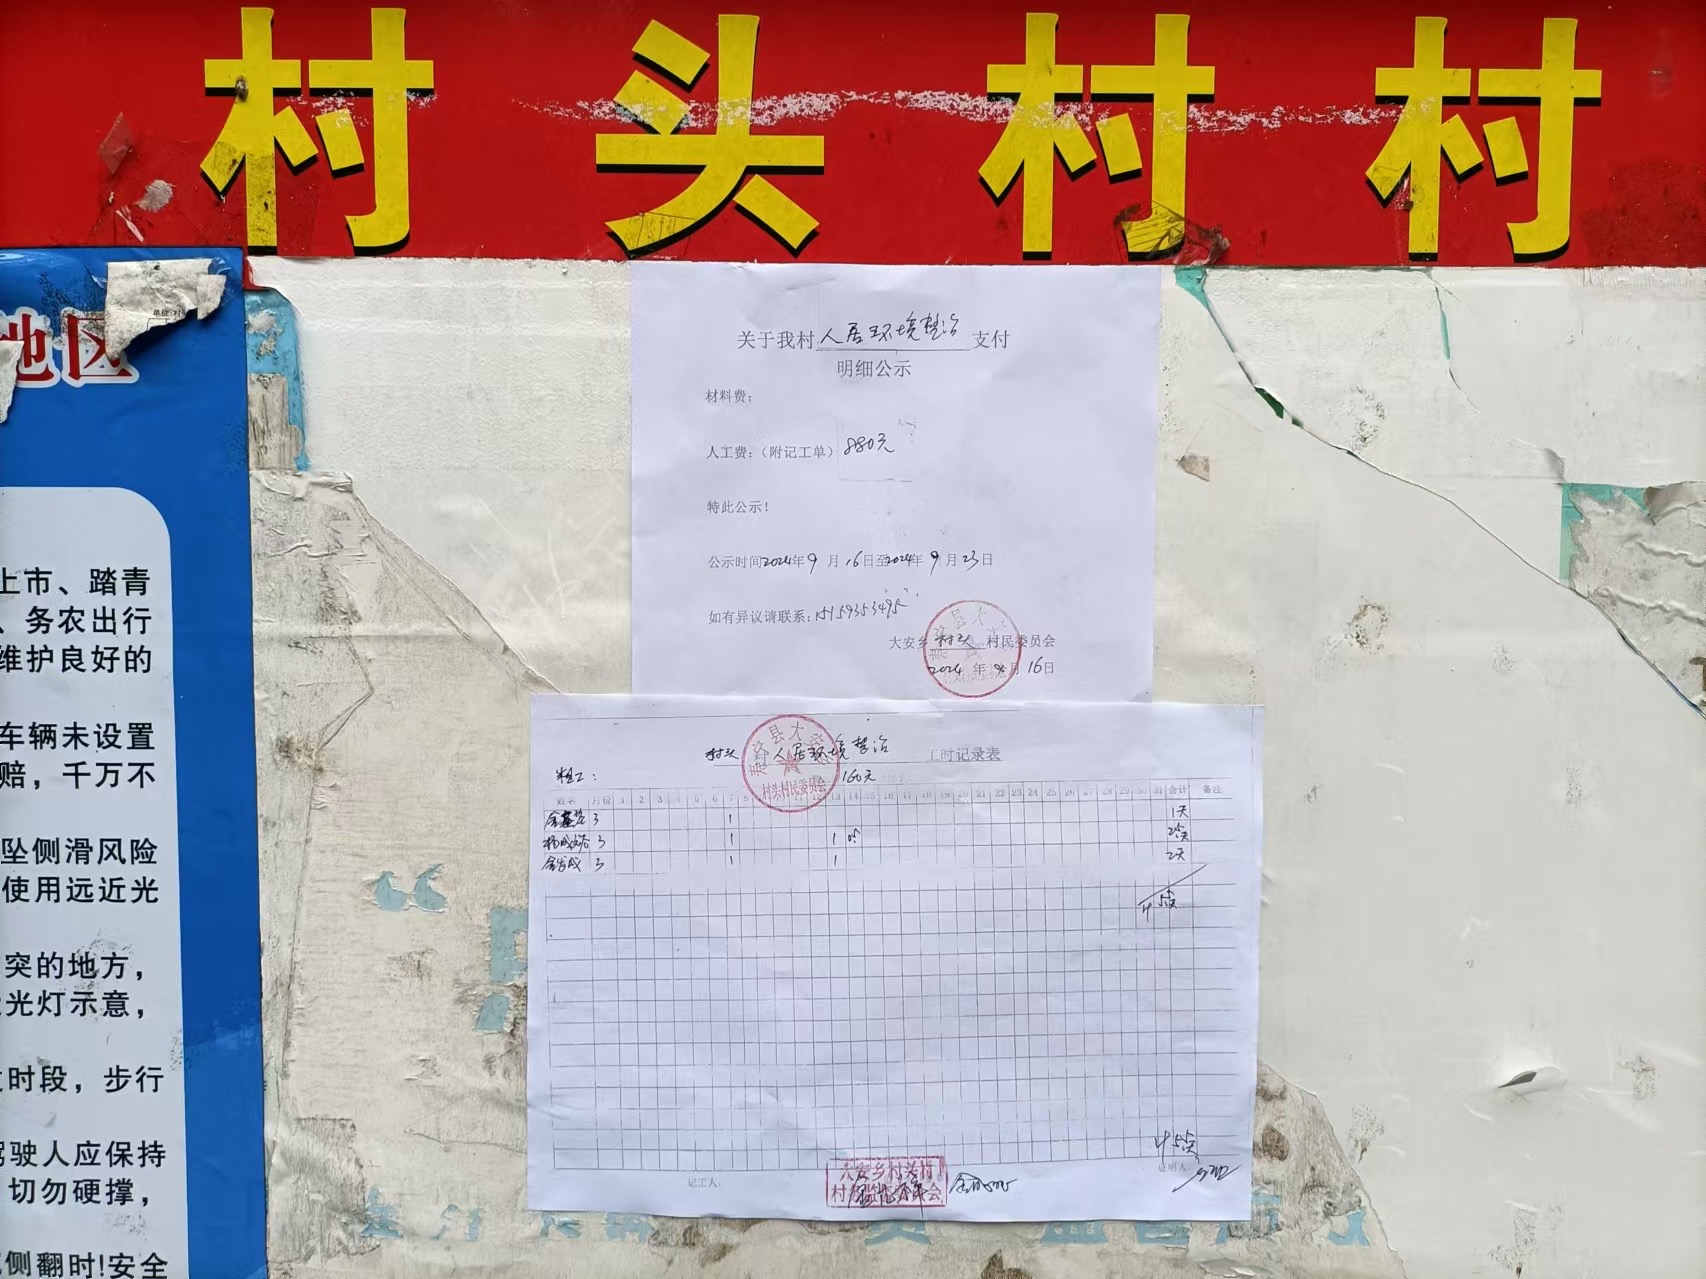 村头村村
地区
上市、踏青
、务农出行
维护良好的
车辆未设置
赔，千万不
坠侧滑风险
使用远近光
突的地方，
光灯示意，
时段，步行
驾驶人应保持
切勿硬撑，
侧翻时!安全
关于我村人居环境整治支付
明细公示
材料费：
人工费：（附记工单）880元
特此公示！
公示时间2024年9月16日至2024年9月23日
如有异议请联系：15159353495
大安乡村头村民委员会
2024年9月16日
村头 人居环境整治 工时记录表
粗工： 160元
村头村民委员会
姓名 月份 1 2 3 4 5 6 7 8 13 14 15 16 17 18 19 20 21 22 23 24 25 26 27 28 29 30 31 合计 备注
1 1天
1 1
1 1 2天
记工人： 证明人
大安乡村头村